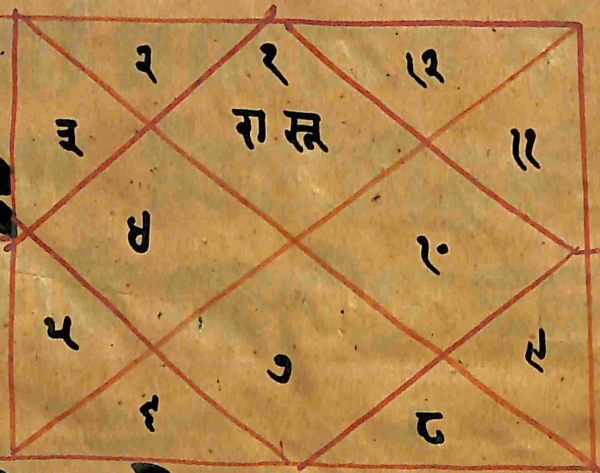 २ १ १२
३ रा ११
४ १०
५ ७ ९
६ ८